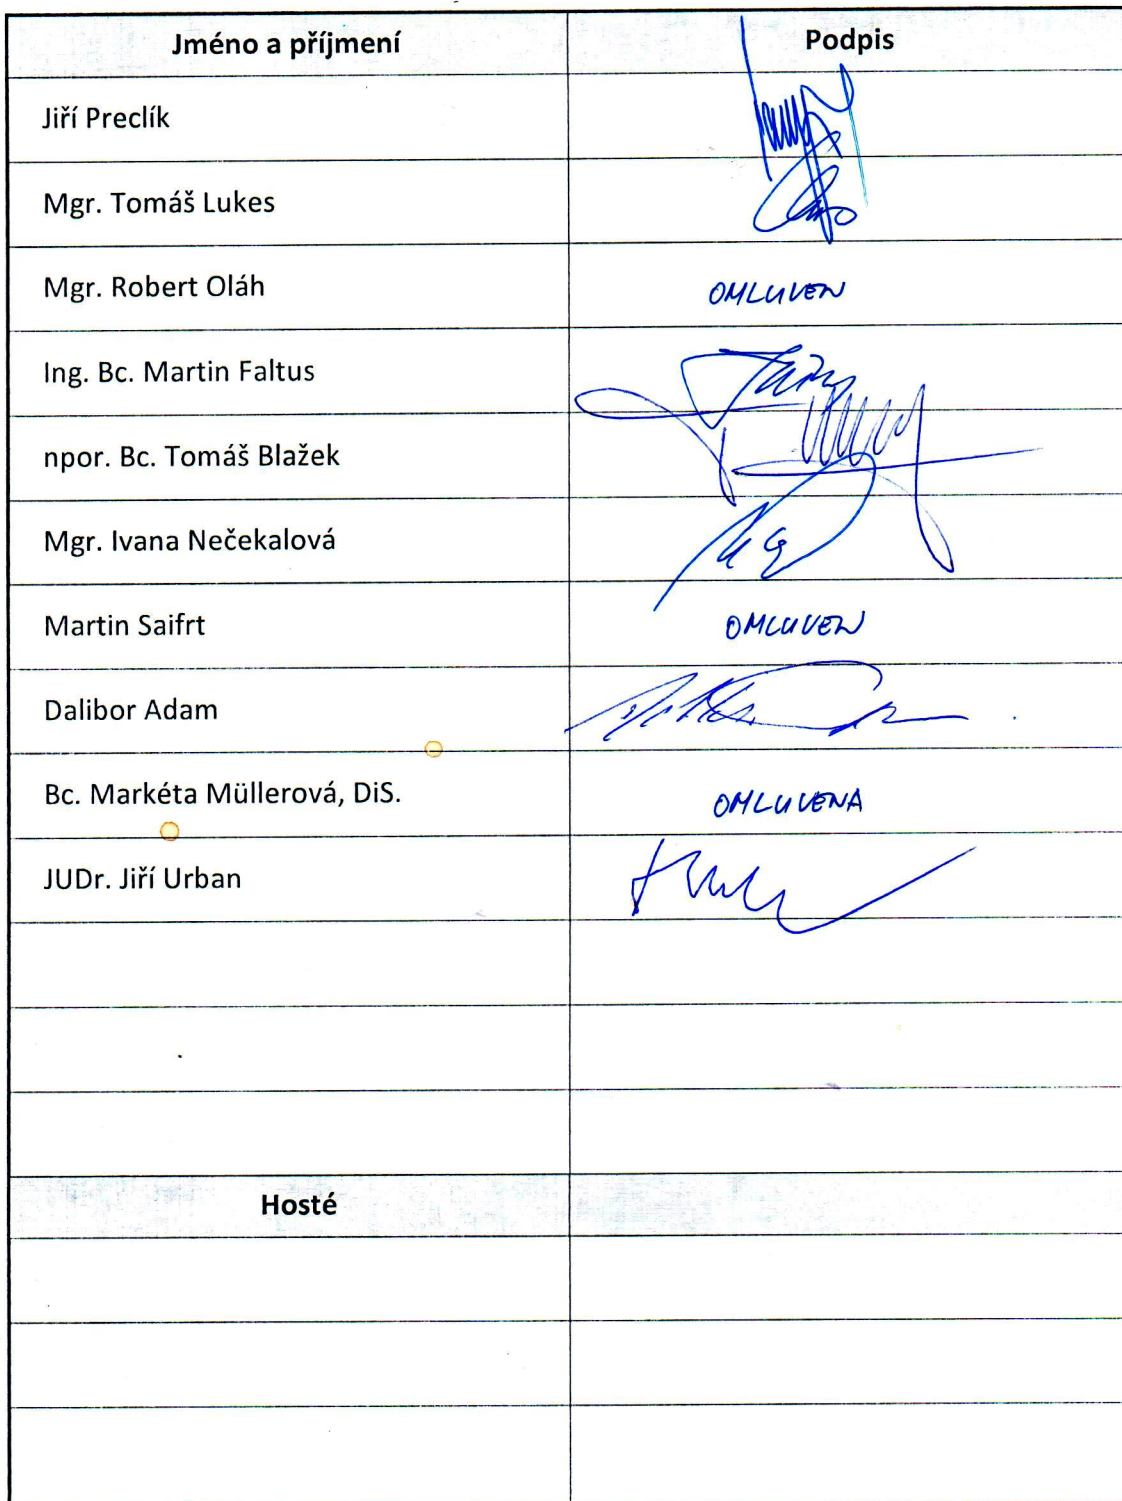 Jméno a příjmení Podpis
Jiří Preclík
Mgr. Tomáš Lukes
Mgr. Robert Oláh OMLUVEN
Ing. Bc. Martin Faltus
npor. Bc. Tomáš Blažek
Mgr. Ivana Nečekalová
Martin Saifrt OMLUVEN
Dalibor Adam
Bc. Markéta Müllerová, DiS. OMLUVENA
JUDr. Jiří Urban
Hosté